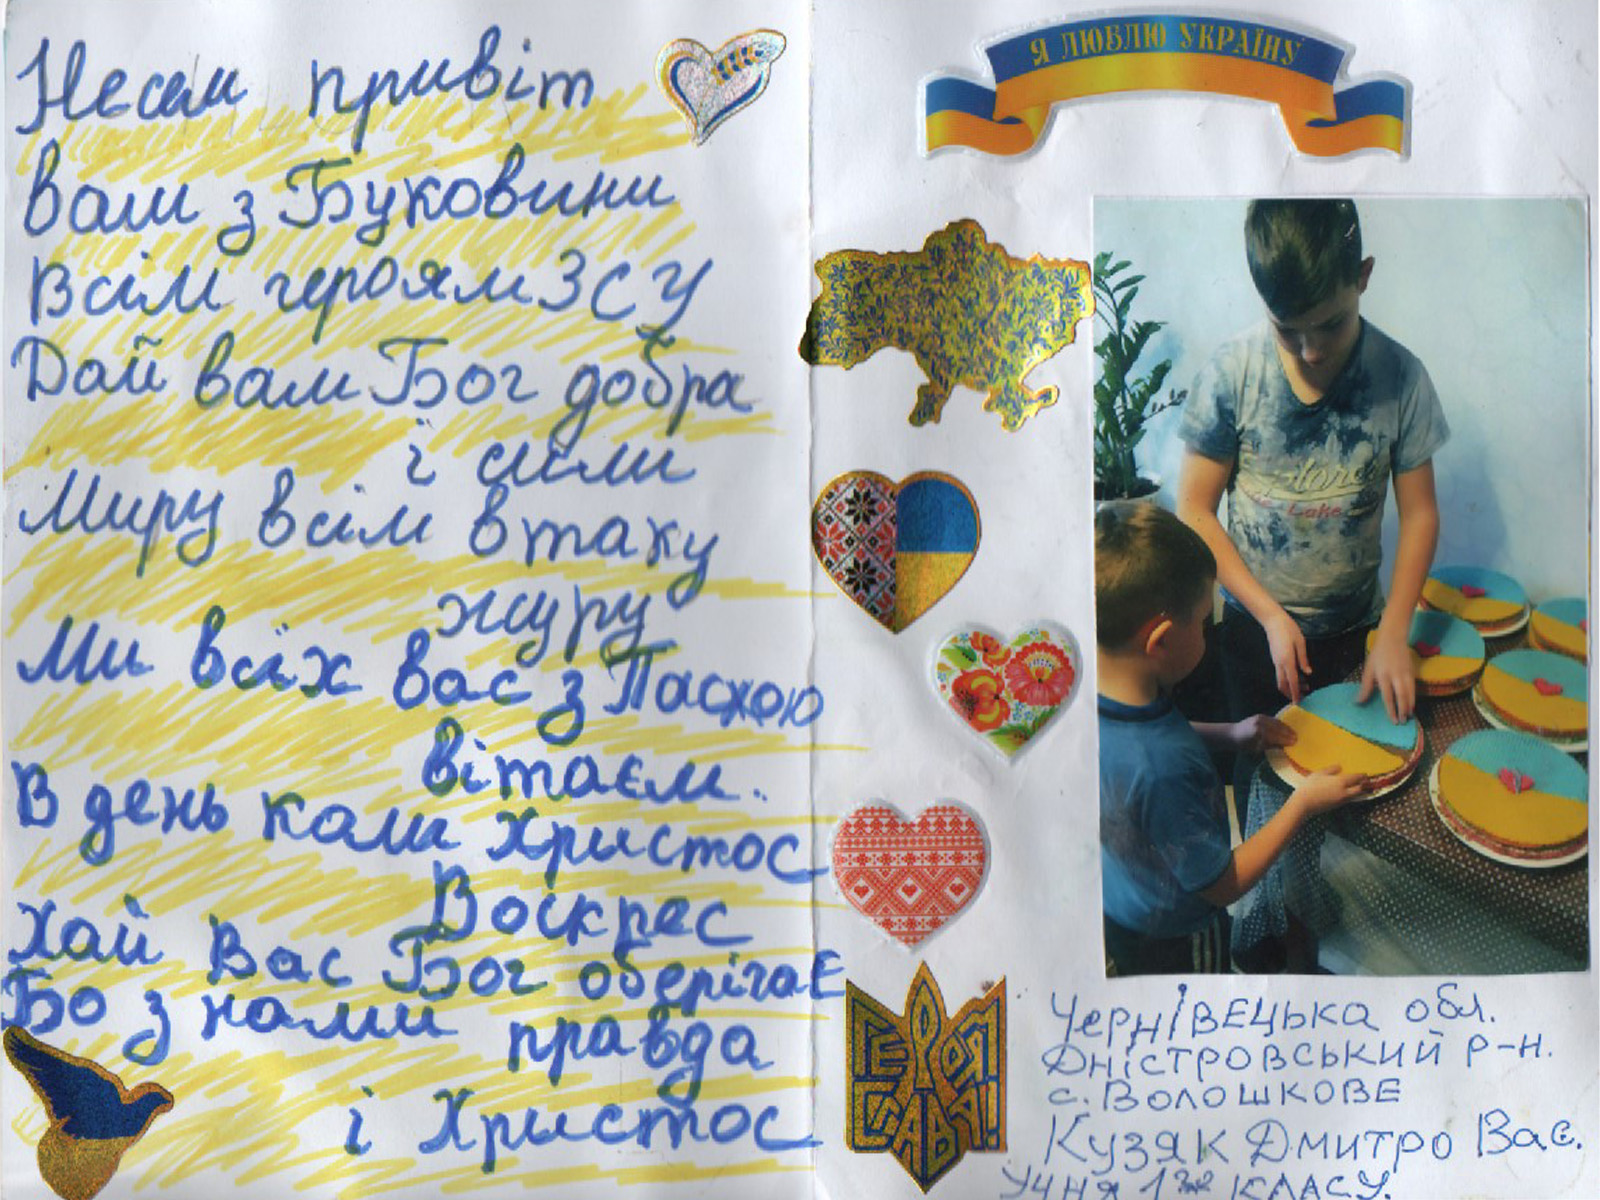 Несем привіт
вам з Буковини
Всім героям ЗСУ
Дай вам Бог добра
і сили
Миру всім в таку
журу
Ми всіх вас з Пасхою
вітаєм.
В день коли Христос
Воскрес
Хай Вас Бог оберігає
Бо з нами правда
і Христос
Я ЛЮБЛЮ УКРАЇНУ
Lake
ГЕРОЯМ
СЛАВА!
Чернівецька обл.
Дністровський р-н.
с. Волошкове
Кузяк Дмитро Вас.
Учня 1 класу.